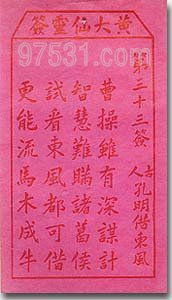 黃大仙靈簽
97531.com
第二十三簽
古人孔明借東風
曹操雖有深謀計
智慧難瞞諸葛侯
試看東風都可借
更能流馬木成牛